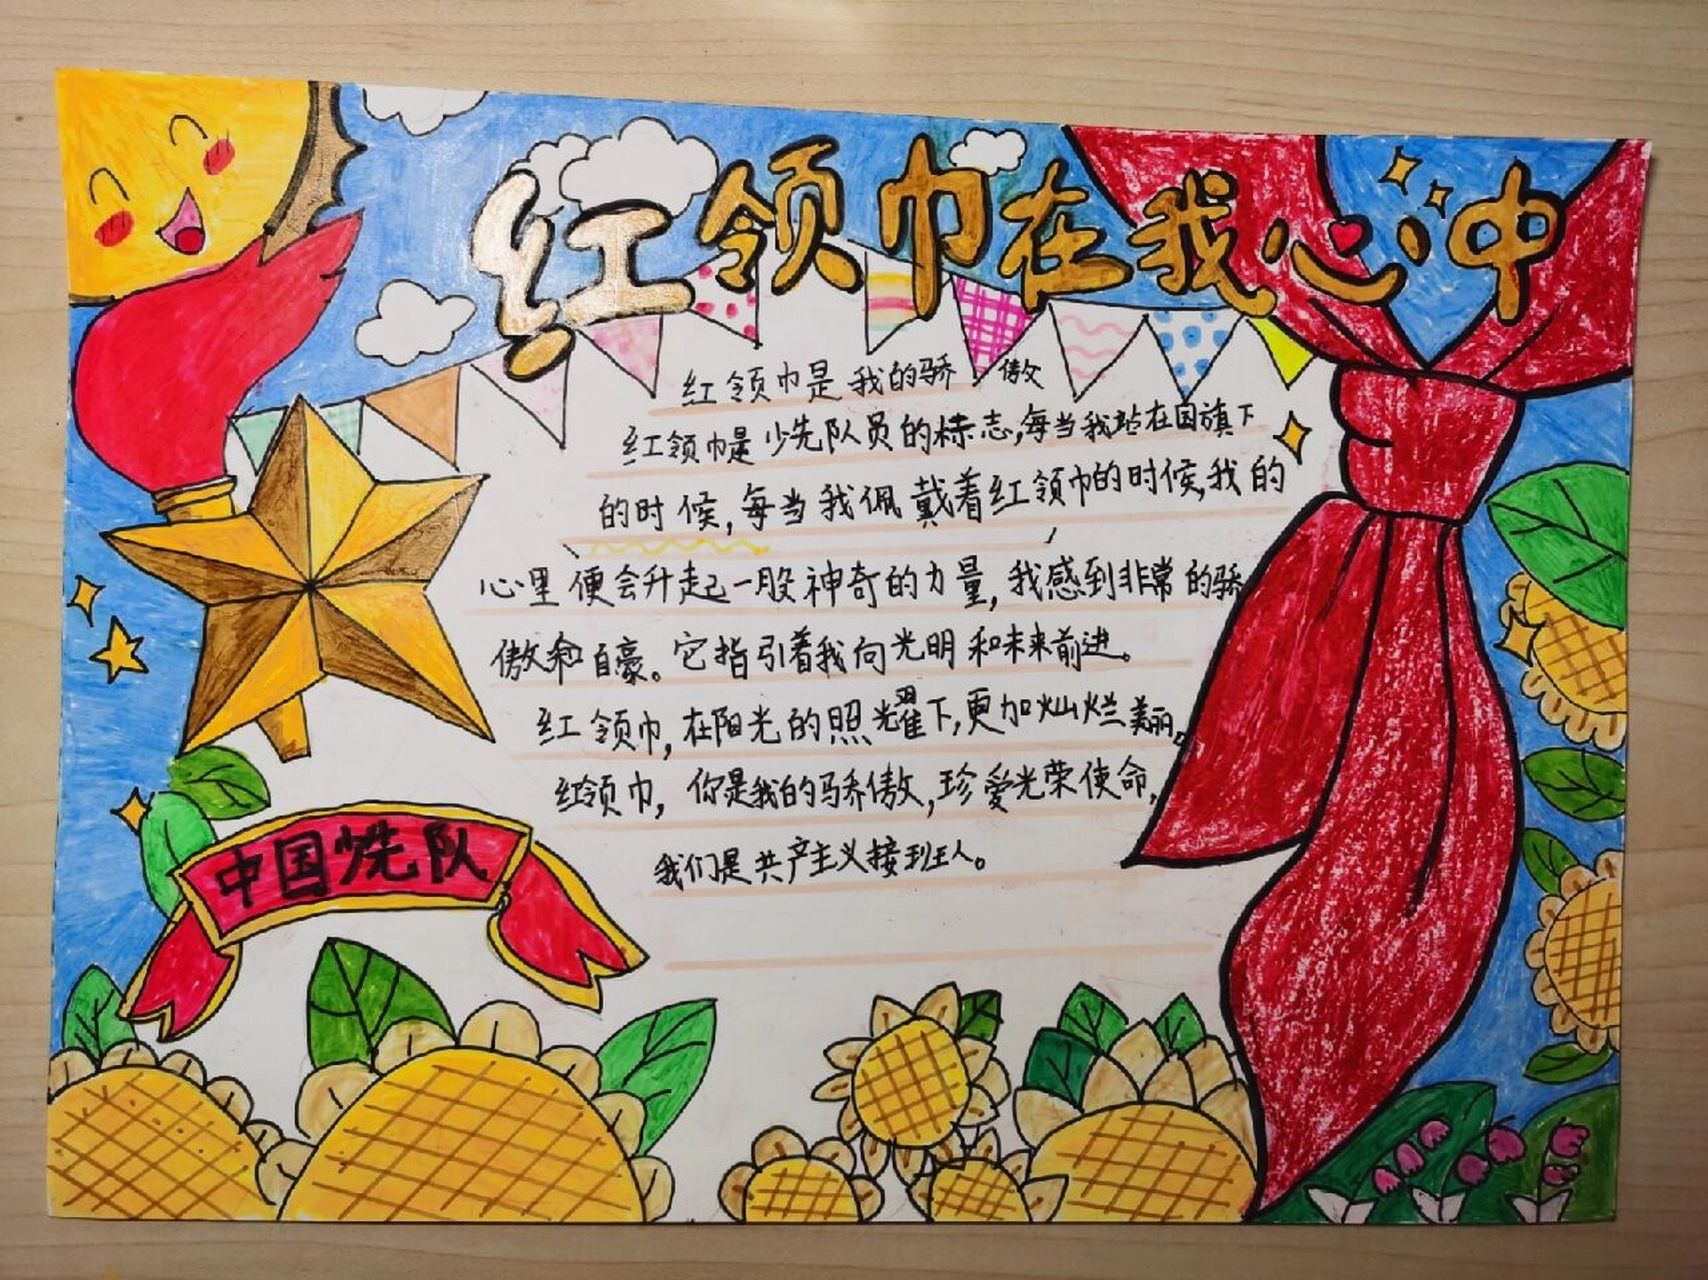 红领巾在我心中
红领巾是我的骄傲
红领巾是少先队员的标志,每当我站在国旗下
的时候,每当我佩戴着红领巾的时候,我的
心里便会升起一股神奇的力量,我感到非常的骄
傲和自豪。它指引着我向光明和未来前进。
红领巾,在阳光的照耀下,更加灿烂美丽。
红领巾,你是我的骄傲,珍爱光荣使命,
我们是共产主义接班人。
中国少先队